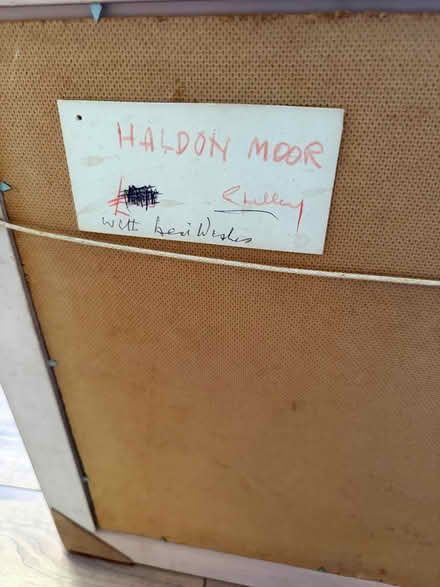 HALDON MOOR
£ Shelley
With best Wishes